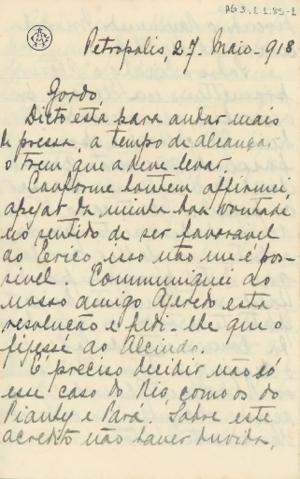 PG 3.2.1.85-2
Petropolis, 27. Maio. 918
Gordo,
Dicto esta para andar mais
de pressa, a tempo de alcançar
o trem que a deve levar.
Conforme hontem affirmei,
apezar da minha boa vontade
no sentido de ser favoravel
ao Cerico, isso não me é pos-
sivel. Communiquei ao
nosso amigo Azeredo esta
resolução e pedi-lhe que o
fizesse ao Alcindo.
É preciso decidir não só
esse caso do Rio como os do
Piauhy e Pará. Sobre este
acredito não haver duvida,